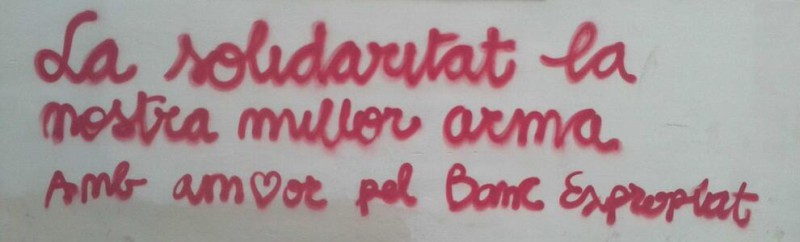 La solidaritat la
nostra millor arma
Amb am♡or pel Banc Expropiat